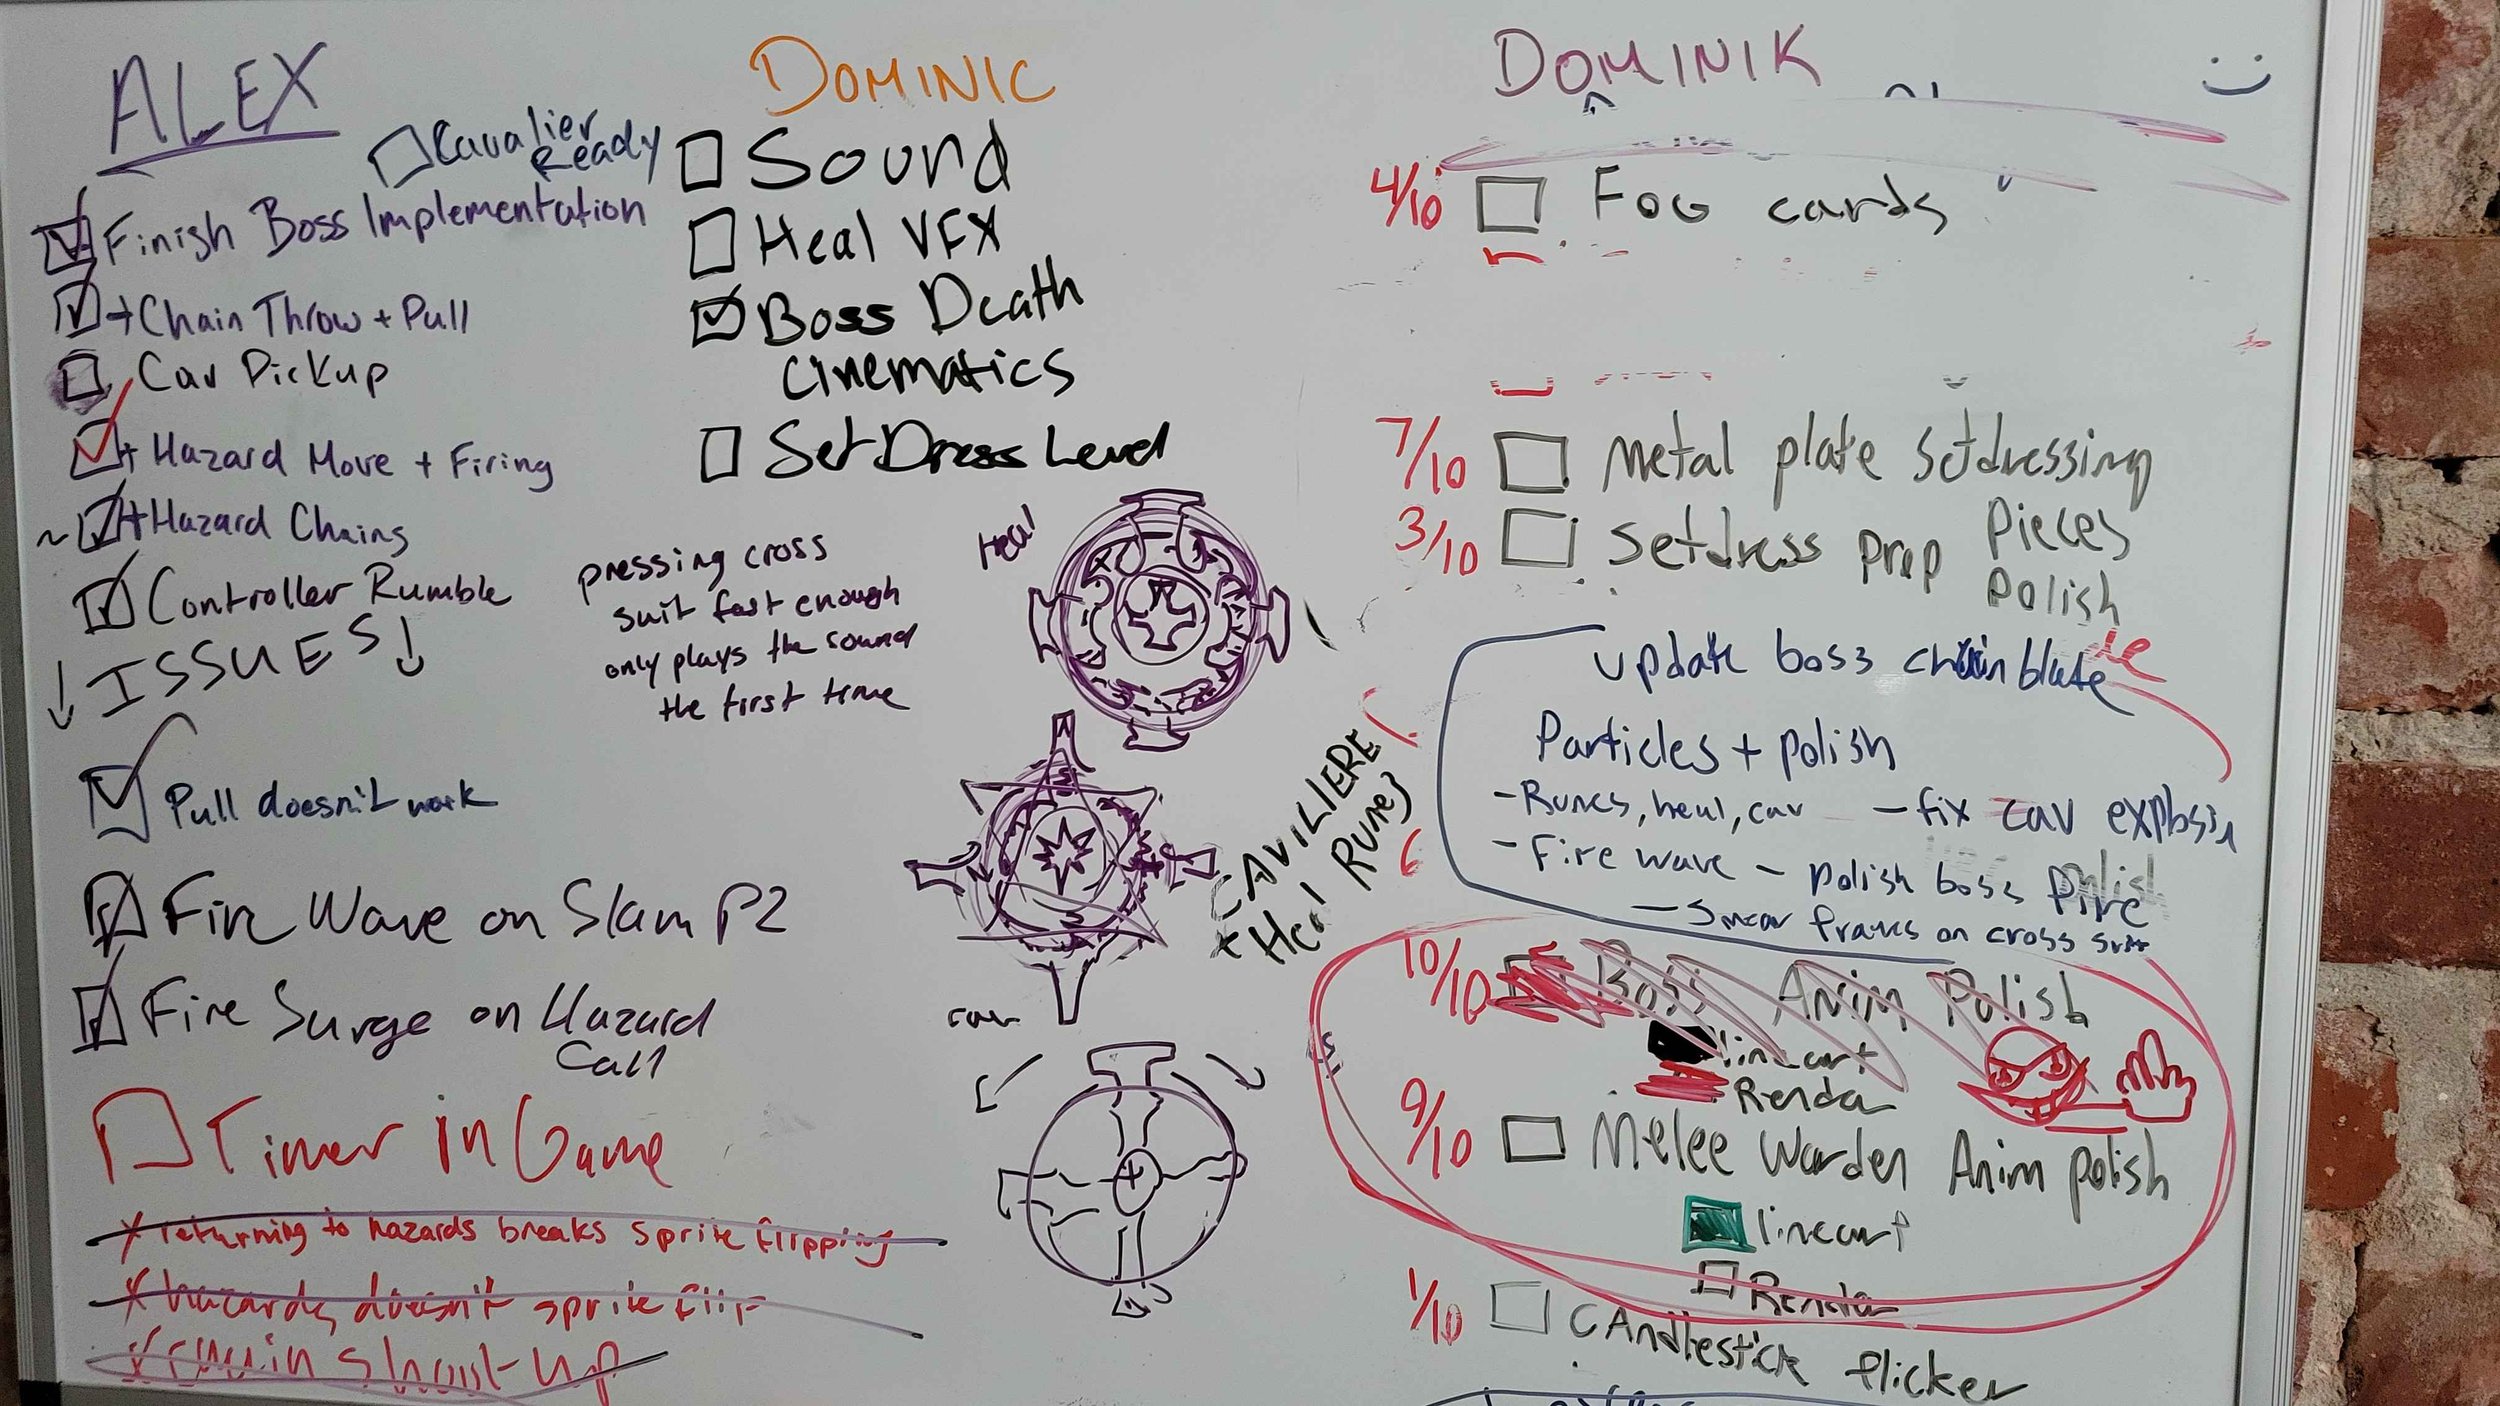 ALEX
Cavalier
Ready
Finish Boss Implementation
+Chain Throw + Pull
Cav Pickup
+ Hazard Move + Firing
~ + Hazard Chains
Controller Rumble
↓ ISSUES ↓
Pull doesn't work
Fire Wave on Slam P2
Fire Surge on Hazard
Call
Timer in Game
x returning to hazards breaks sprite flipping
x hazards doesn't sprite flip
shoot up
DOMINIC
Sound
Heal VFX
Boss Death
Cinematics
Set Dress Level
pressing cross
suit fast enough
only plays the sound
the first time
Heal
CAVILIERE
+ Heal Runes
cav
DOMINIK
4/10 Fog cards
7/10 Metal plate setdressing
3/10 Setdress prep Pieces
Polish
update boss chain blade
Particles + polish
- Runes, heal, cav - fix cav explosin
- Fire wave - polish boss fire
- Smear frames on cross suit
10/10 Boss Anim Polish
lineart
Render
9/10 Melee Warden Anim polish
lineart
Render
1/10 CAndlestick flicker